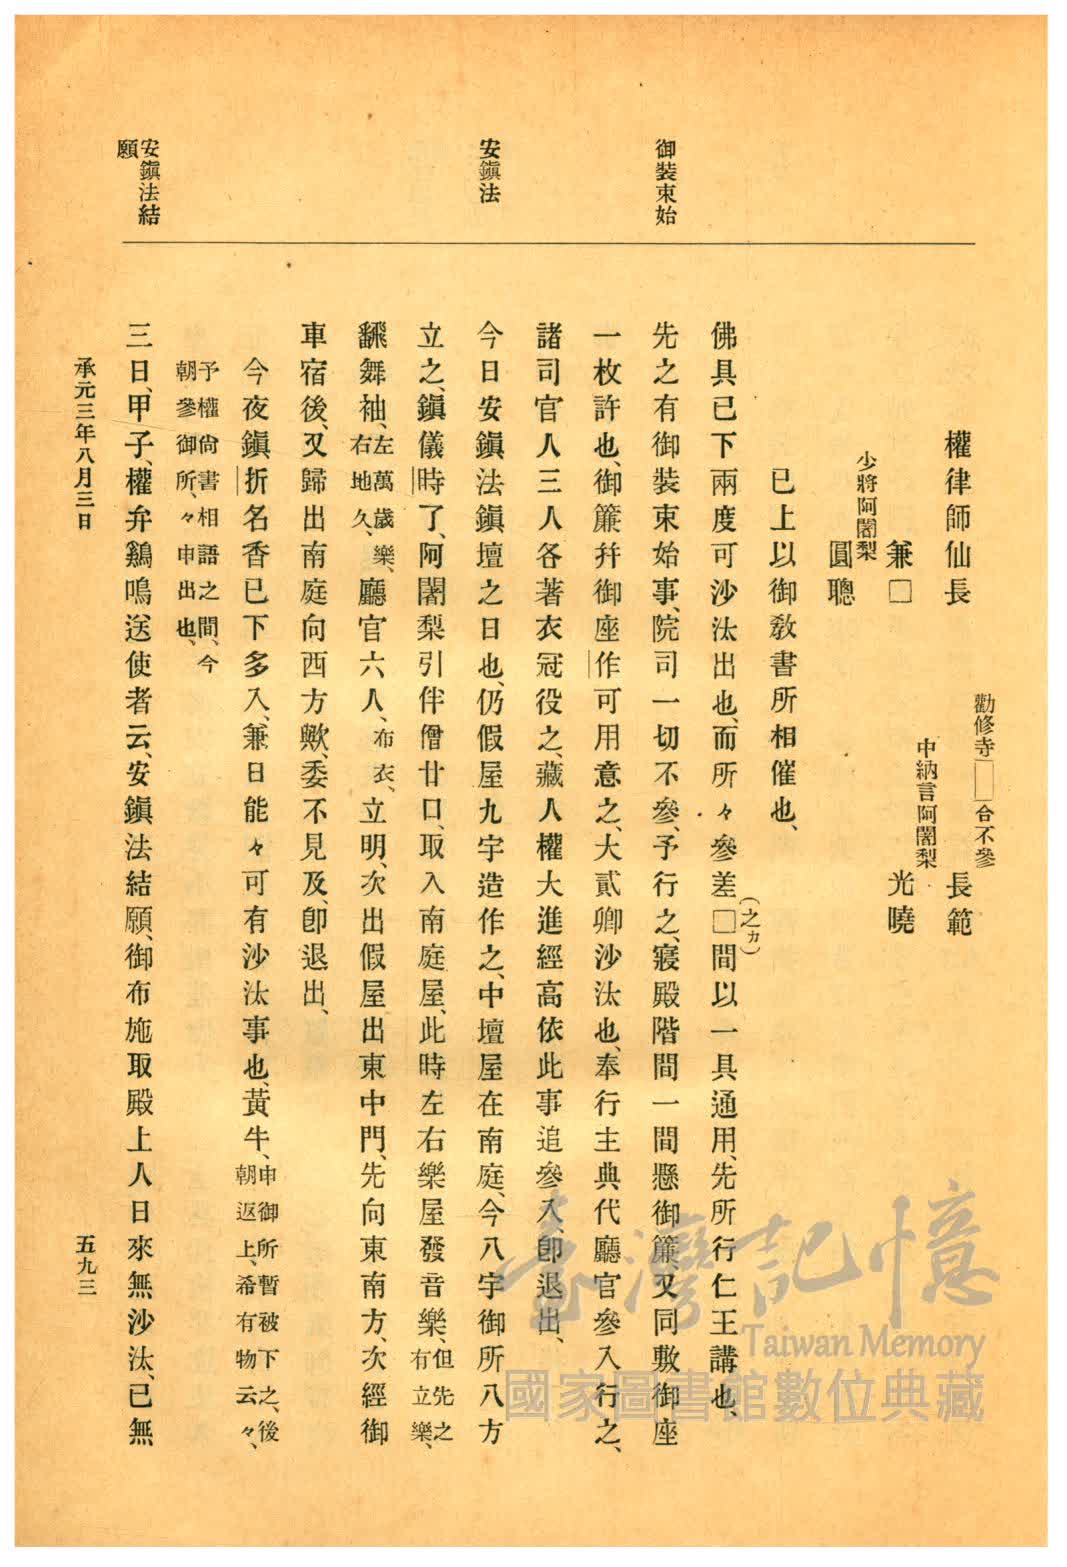 御裝束始
安鎭法
安鎭法結
願
權律師仙長
勸修寺□合不參
長範
中納言阿闍梨
兼□
光曉
少將阿闍梨
圓聰
已上以御敎書所相催也、
佛具已下兩度可沙汰出也、而所々參差□間以一具通用、先所行仁王講也、
(之カ)
先之有御裝束始事、院司一切不參、予行之、寢殿階間一間懸御簾、又同敷御座
一枚許也、御簾幷御座作可用意之、大貳卿沙汰也、奉行主典代廳官參入行之、
諸司官人三人各著衣冠役之、藏人權大進經高依此事追參入、卽退出、
今日安鎭法鎭壇之日也、仍假屋九宇造作之、中壇屋在南庭、今八宇御所八方
立之、鎭儀時了、阿闍梨引伴僧廿口、取入南庭屋、此時左右樂屋發音樂、但先之
有立樂、
飜舞袖、左萬歲樂、
右地久、廳官六人、布衣、立明、次出假屋出東中門、先向東南方、次經御
車宿後、又歸出南庭向西方歟、委不見及、卽退出、
今夜鎭折名香已下多入、兼日能々可有沙汰事也、黃牛、申御所暫被下之、後
朝返上、希有物云々、
予權尙書相語之間、今
朝參御所、々申出也、
三日、甲子、權弁鷄鳴送使者云、安鎭法結願、御布施取殿上人日來無沙汰、已無
承元三年八月三日
五九三
臺灣記憶
Taiwan Memory
國家圖書館數位典藏